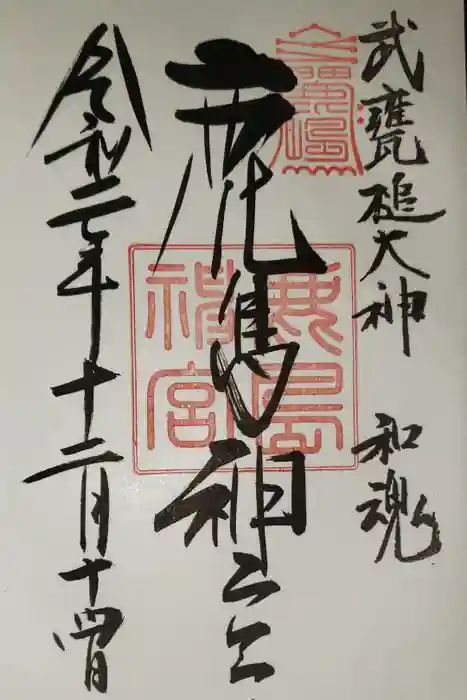 武甕槌大神 和魂
鹿島神宮
鹿島神宮
令和二年十二月十四日